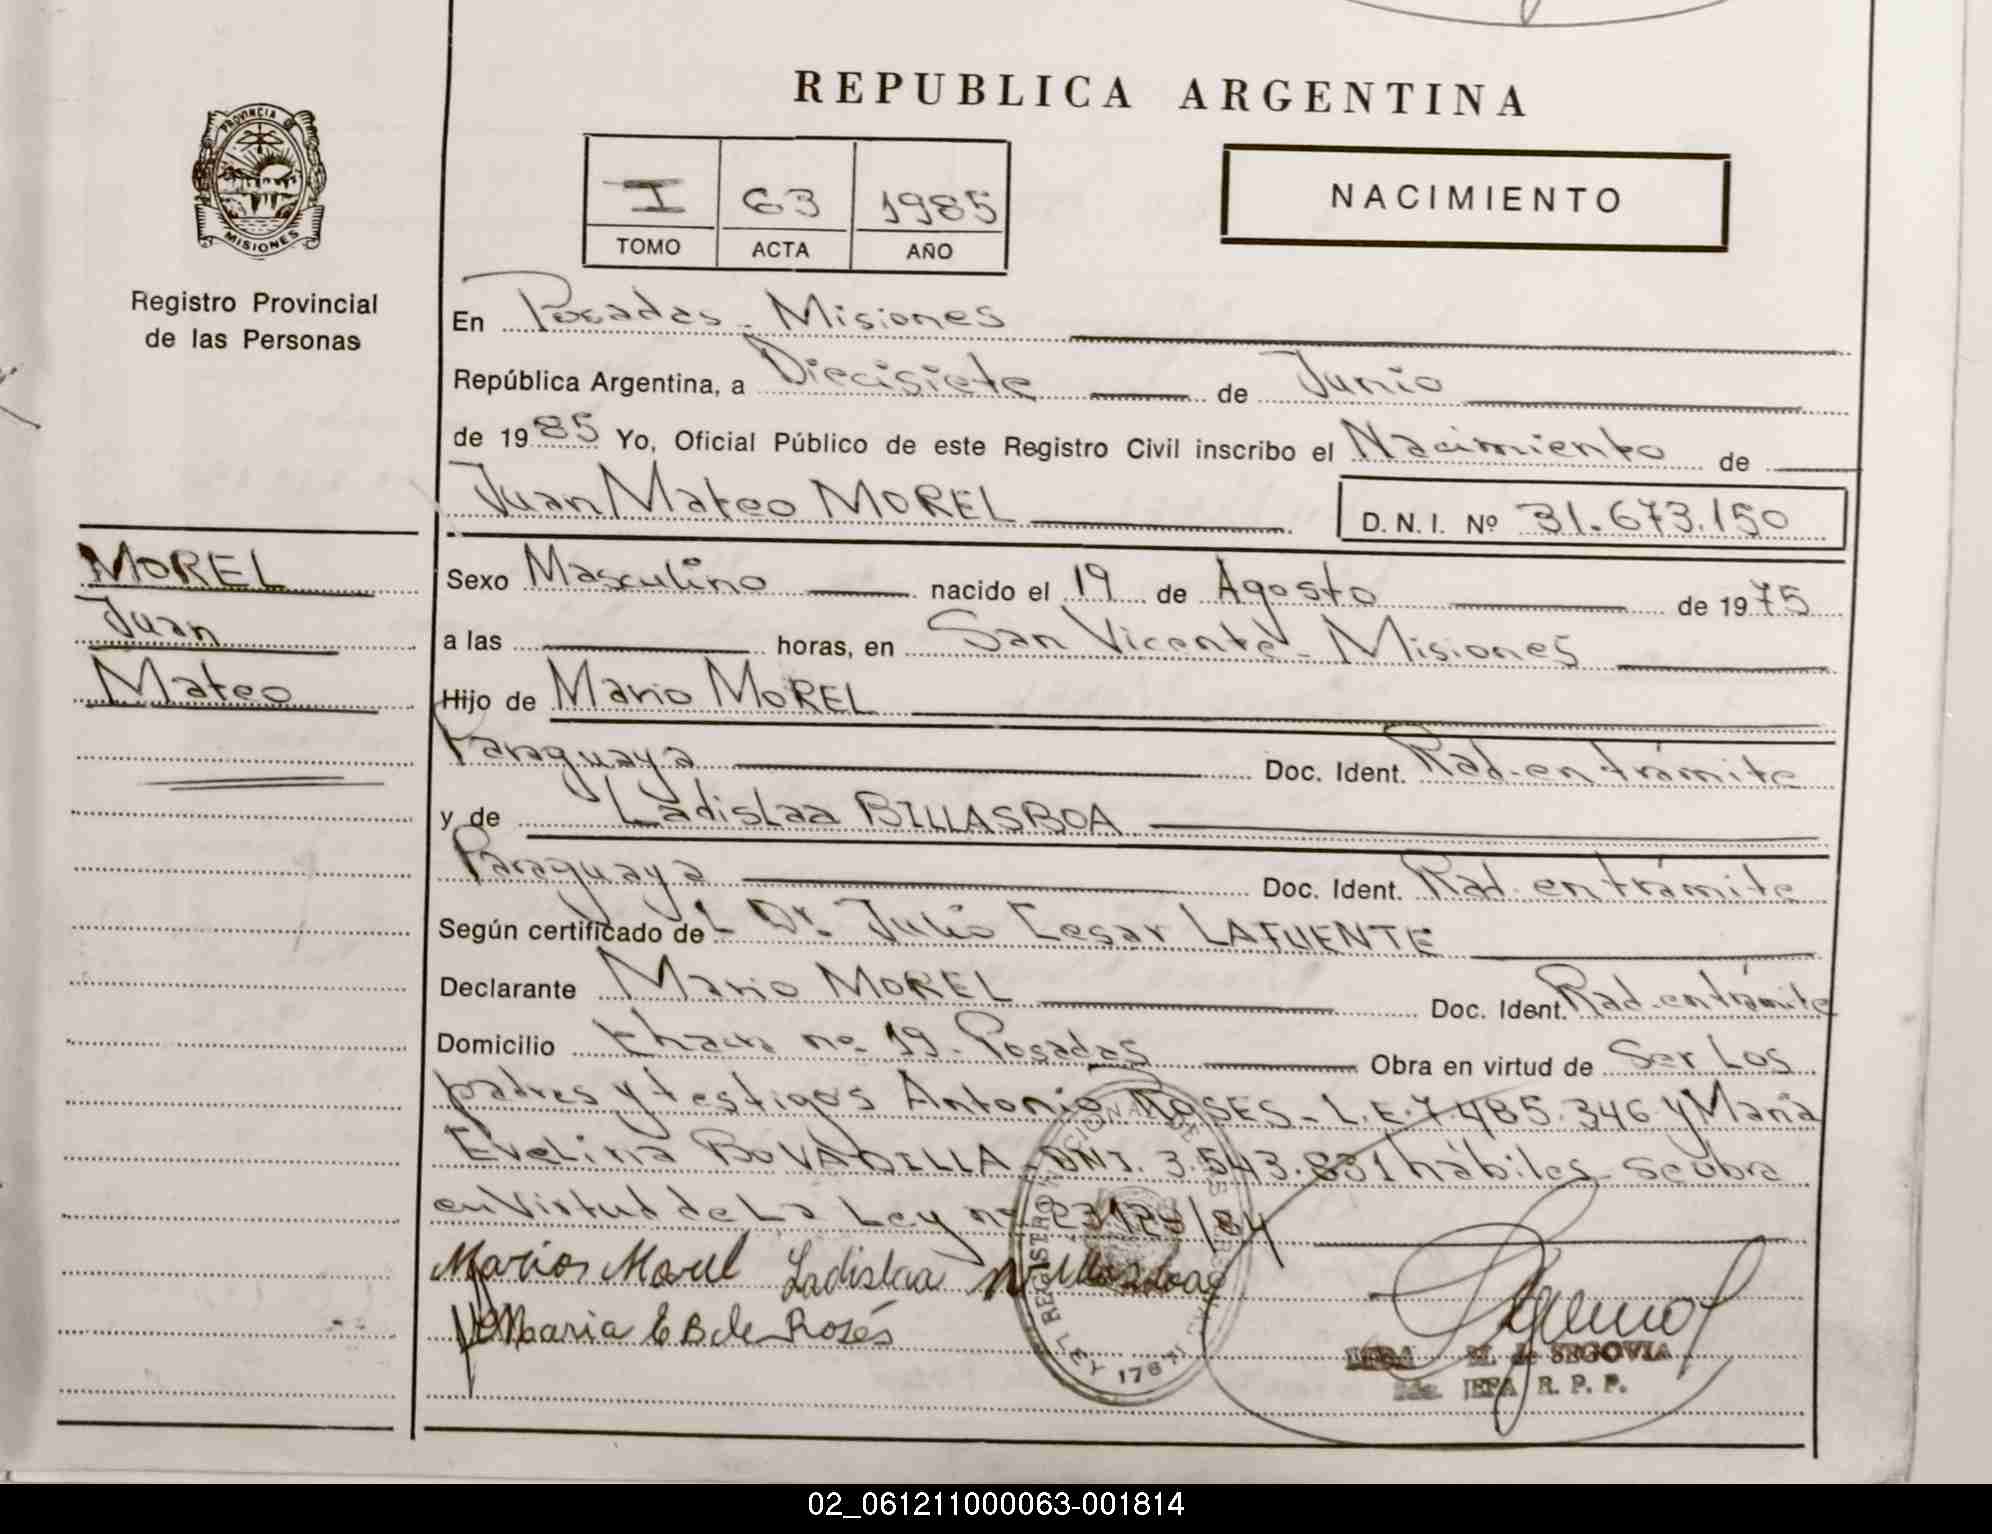 REPUBLICA ARGENTINA
PROVINCIA DE
MISIONES
Registro Provincial
de las Personas
I 63 1985
TOMO ACTA AÑO
NACIMIENTO
En Posadas - Misiones
República Argentina, a Diecisiete de Junio
de 1985 Yo, Oficial Público de este Registro Civil inscribo el Nacimiento de
Juan Mateo MOREL D.N.I. Nº 31.673.150
MOREL
Juan
Mateo
Sexo Masculino nacido el 19 de Agosto de 1975
a las horas, en San Vicente - Misiones
Hijo de Mario MOREL
Paraguaya Doc. Ident. Rad. en trámite
y de Ladislaa BILLASBOA
Paraguaya Doc. Ident. Rad. en trámite
Según certificado del Dr. Julio Cesar LAFUENTE
Declarante Mario MOREL Doc. Ident. Rad. en trámite
Domicilio nº 19 - Posadas Obra en virtud de Ser Los
padres y testigos Antonio ROSES - L.E. 7.485.346 y Maria
Evelina BOVADILLA - DNI. 3.543.831 hábiles - se obra
en Virtud de La Ley nº /84
Marios Morel Ladislaa
Maria E B de Rosés
LEY 17671
M. de SEGOVIA
JEFA R. P. P.
02_061211000063-001814